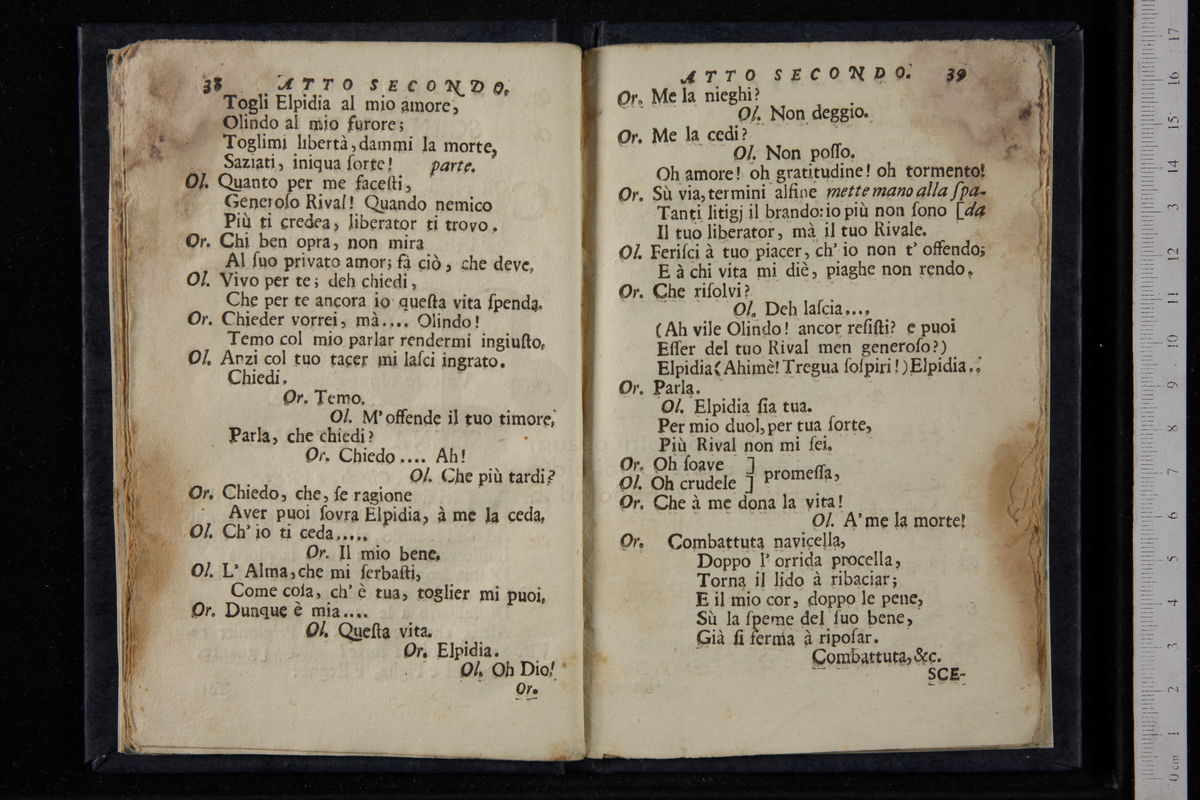 38 ATTO SECONDO.
Togli Elpidia al mio amore,
Olindo al mio furore;
Toglimi libertà, dammi la morte,
Saziati, iniqua ſorte! parte.
Ol. Quanto per me faceſti,
Generoſo Rival! Quando nemico
Più ti credea, liberator ti trovo.
Or. Chi ben opra, non mira
Al ſuo privato amor; fà ciò, che deve.
Ol. Vivo per te; deh chiedi,
Che per te ancora io queſta vita ſpenda.
Or. Chieder vorrei, mà.... Olindo!
Temo col mio parlar rendermi ingiuſto.
Ol. Anzi col tuo tacer mi laſci ingrato.
Chiedi.
Or. Temo.
Ol. M'offende il tuo timore;
Parla, che chiedi?
Or. Chiedo.... Ah!
Ol. Che più tardi?
Or. Chiedo, che, ſe ragione
Aver puoi ſovra Elpidia, à me la ceda.
Ol. Ch' io ti ceda.....
Or. Il mio bene.
Ol. L' Alma, che mi ſerbaſti,
Come coſa, ch' è tua, toglier mi puoi.
Or. Dunque è mia....
Ol. Queſta vita.
Or. Elpidia.
Ol. Oh Dio!
Or.
ATTO SECONDO. 39
Or. Me la nieghi?
Ol. Non deggio.
Or. Me la cedi?
Ol. Non poſſo.
Oh amore! oh gratitudine! oh tormento!
Or. Sù via, termini alfine mette mano alla ſpa-
Tanti litigj il brando: io più non ſono [da
Il tuo liberator, mà il tuo Rivale.
Ol. Feriſci à tuo piacer, ch' io non t' offendo;
E à chi vita mi diè, piaghe non rendo.
Or. Che riſolvi?
Ol. Deh laſcia....
(Ah vile Olindo! ancor reſiſti? e puoi
Eſſer del tuo Rival men generoſo?)
Elpidia (Ahimè! Tregua ſoſpiri!) Elpidia..
Or. Parla.
Ol. Elpidia ſia tua.
Per mio duol, per tua ſorte,
Più Rival non mi ſei.
Or. Oh ſoave ]
Ol. Oh crudele ] promeſſa,
Or. Che à me dona la vita!
Ol. A' me la morte!
Or. Combattuta navicella,
Doppo l' orrida procella,
Torna il lido à ribaciar;
E il mio cor, doppo le pene,
Sù la ſpeme del ſuo bene,
Già ſi ferma à ripoſar.
Combattuta, &c.
SCE-